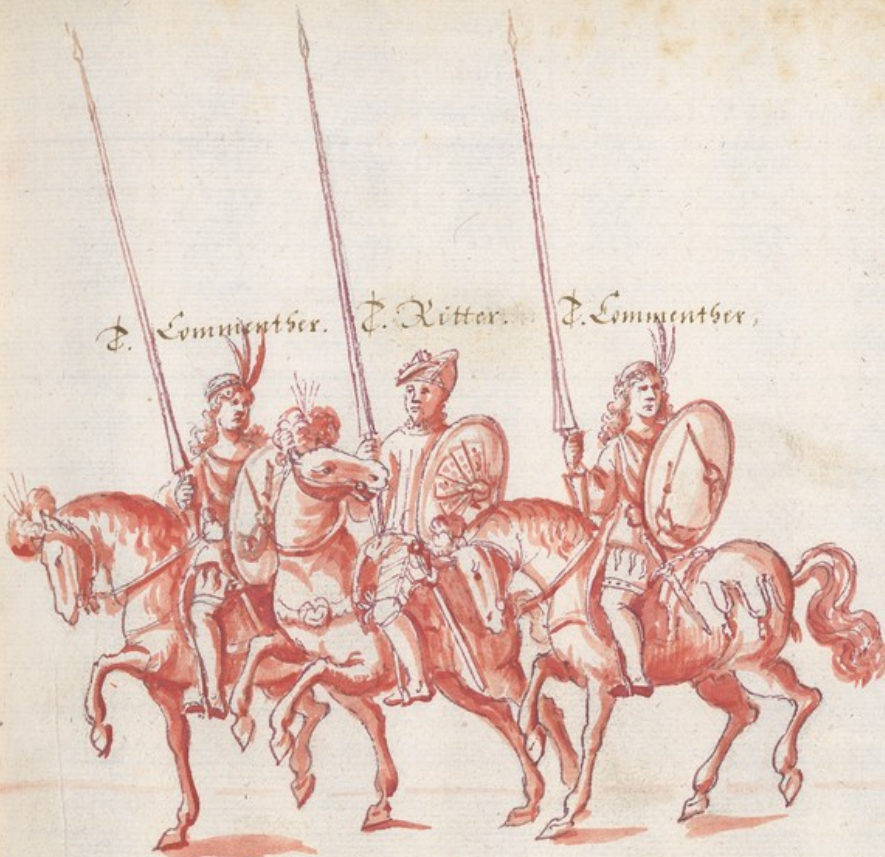 C. Commenther. C. Ritter. C. Commenther,